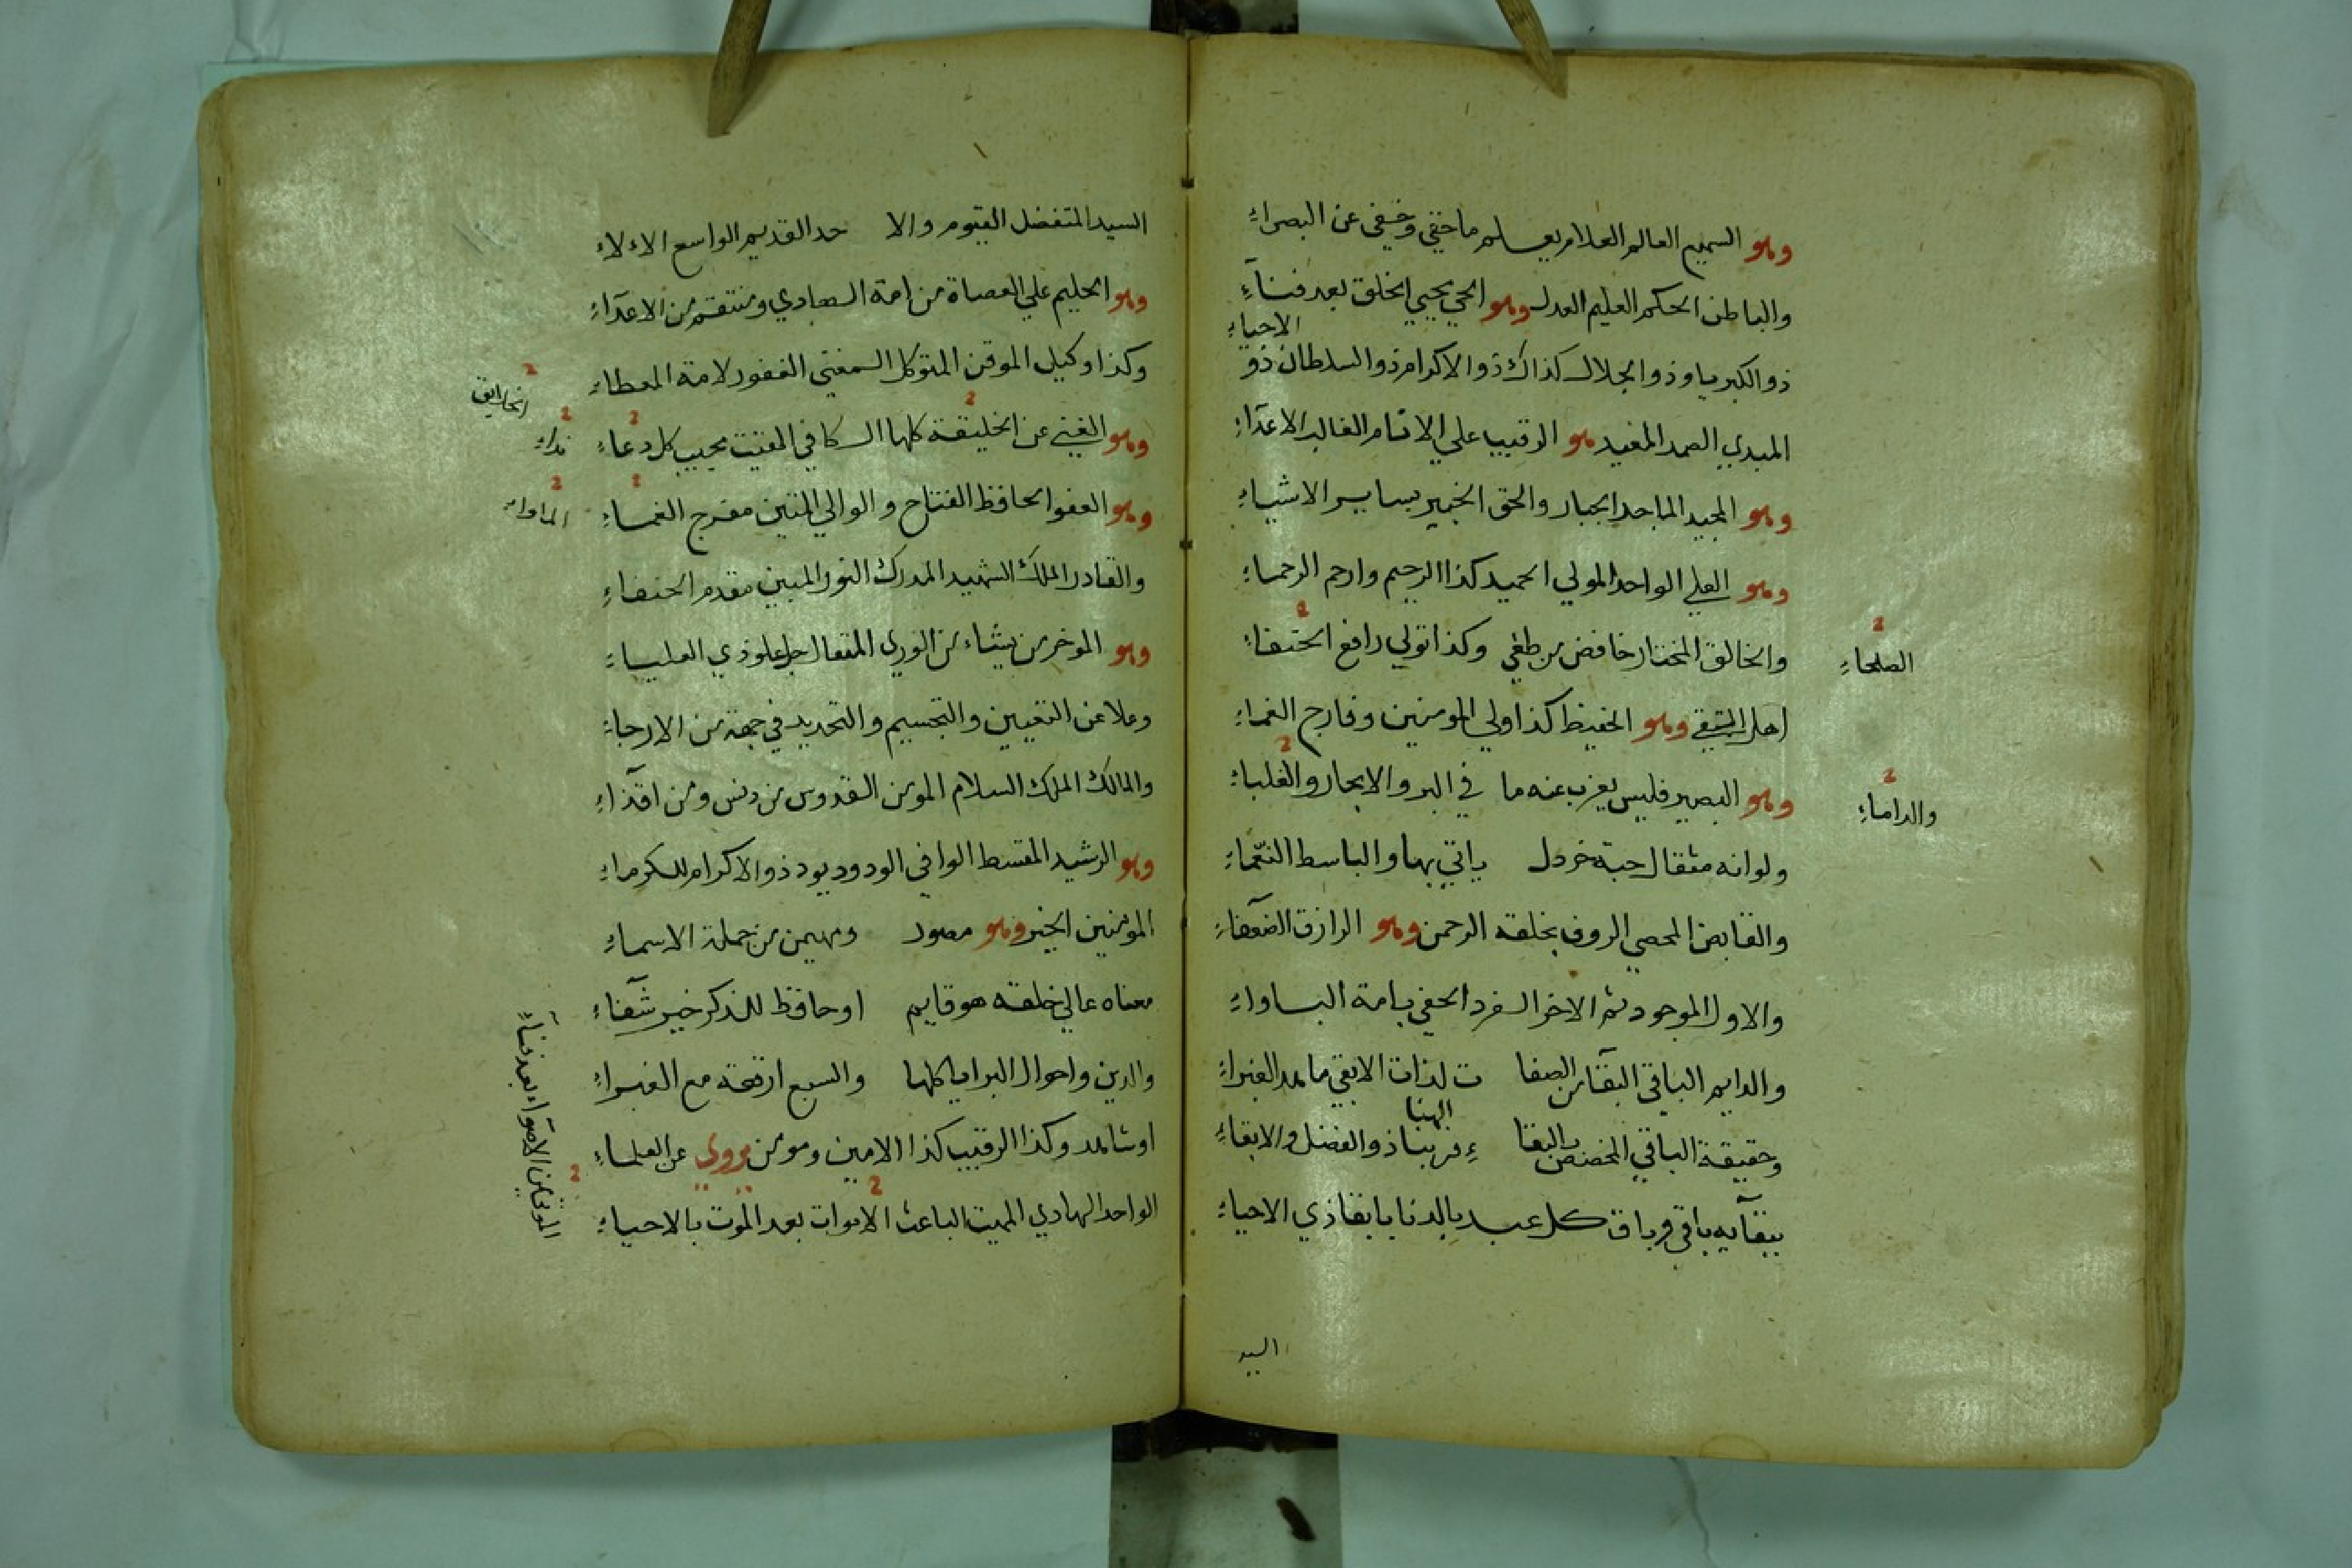 وهو السميع العالم العلام يعلم ما خفي وخفي عن البصراء
والباطن الحكم العليم العدل وهو الحي يحيي الخلق بعد فناء
الاحياء
ذو الكبريا وذو الجلال كذاك ذو الاكرام ذو السلطان ذو
المبدي الصمد المعيد هو الرقيب علي الانام الغالب الاعداء
وهو المجيد الماجد الجبار والحق الخبير بساير الاشياء
وهو العلي الواحد المولي الحميد كذا الرحيم وارحم الرحماء
والخالق المختار خافض من طغي وكذا تولي رافع الحنفاء
الصلحاء
اهل التقي وهو الحفيظ كذا ولي المومنين وفارج الغماء
وهو البصير فليس يعزب عنه ما في البر والابحار والغلباء
والداماء
ولو انه مثقال حبة خردل ياتي بها والباسط النعماء
والقابض المحصي الروف بخلقه الرحمن وهو الرازق الضعفاء
والاول الموجود ثم الاخر الفرد الحفي بامة الباواء
والدايم الباقي البقا من الصفا ت لذات الابقي ما لمد الغبراء
وحقيقة الباقي المخصص بالبقا ء فربنا ذو الفضل والابقاء
الهنا
ببقآيه باقي وباق كل عبد بالدنا يا بقا ذي الاحياء
السيد
السيد المتفضل القيوم والا حد القديم الواسع الالاء
وهو الحليم علي العصاة من امة الهادي ومنتقم من الاعدآء
وكذا وكيل الموقن المتوكل المغني الغفور لامة المعطاء
وهو الغني عن الخليقة كلها الكافي المقيت مجيب كل دعاء
الخلايق
نداء
وهو العفو الحافظ الفتاح والوالي المتين مفرج الغماء
والقادر الملك الشهيد المدرك النور المبين مقدم الحنفاء
وهو الموخر من يشاء من الوري المتعال جل علو ذي العلياء
وعلا عن التعيين والتجسيم والتحديد في جهة من الارجاء
والمالك الملك السلام المومن القدوس من دنس ومن اقذاء
وهو الرشيد المقسط الوافي الودود يود ذو الاكرام للكرماء
المومنين الخير وهو مصور ومهيمن من جملة الاسماء
معناه عالي خلقه هو قايم او حافظ للذكر خير شفاء
والدين واحوال البرايا كلها والسبع ارقعة مع الغبراء
او شاهد وكذا الرقيب كذا الامين ومومن يروي عن العلماء
الواحد الهادي المميت الباعث الاموات بعد الموت بالاحياء
الموتي من الاصوآء بعد فناء